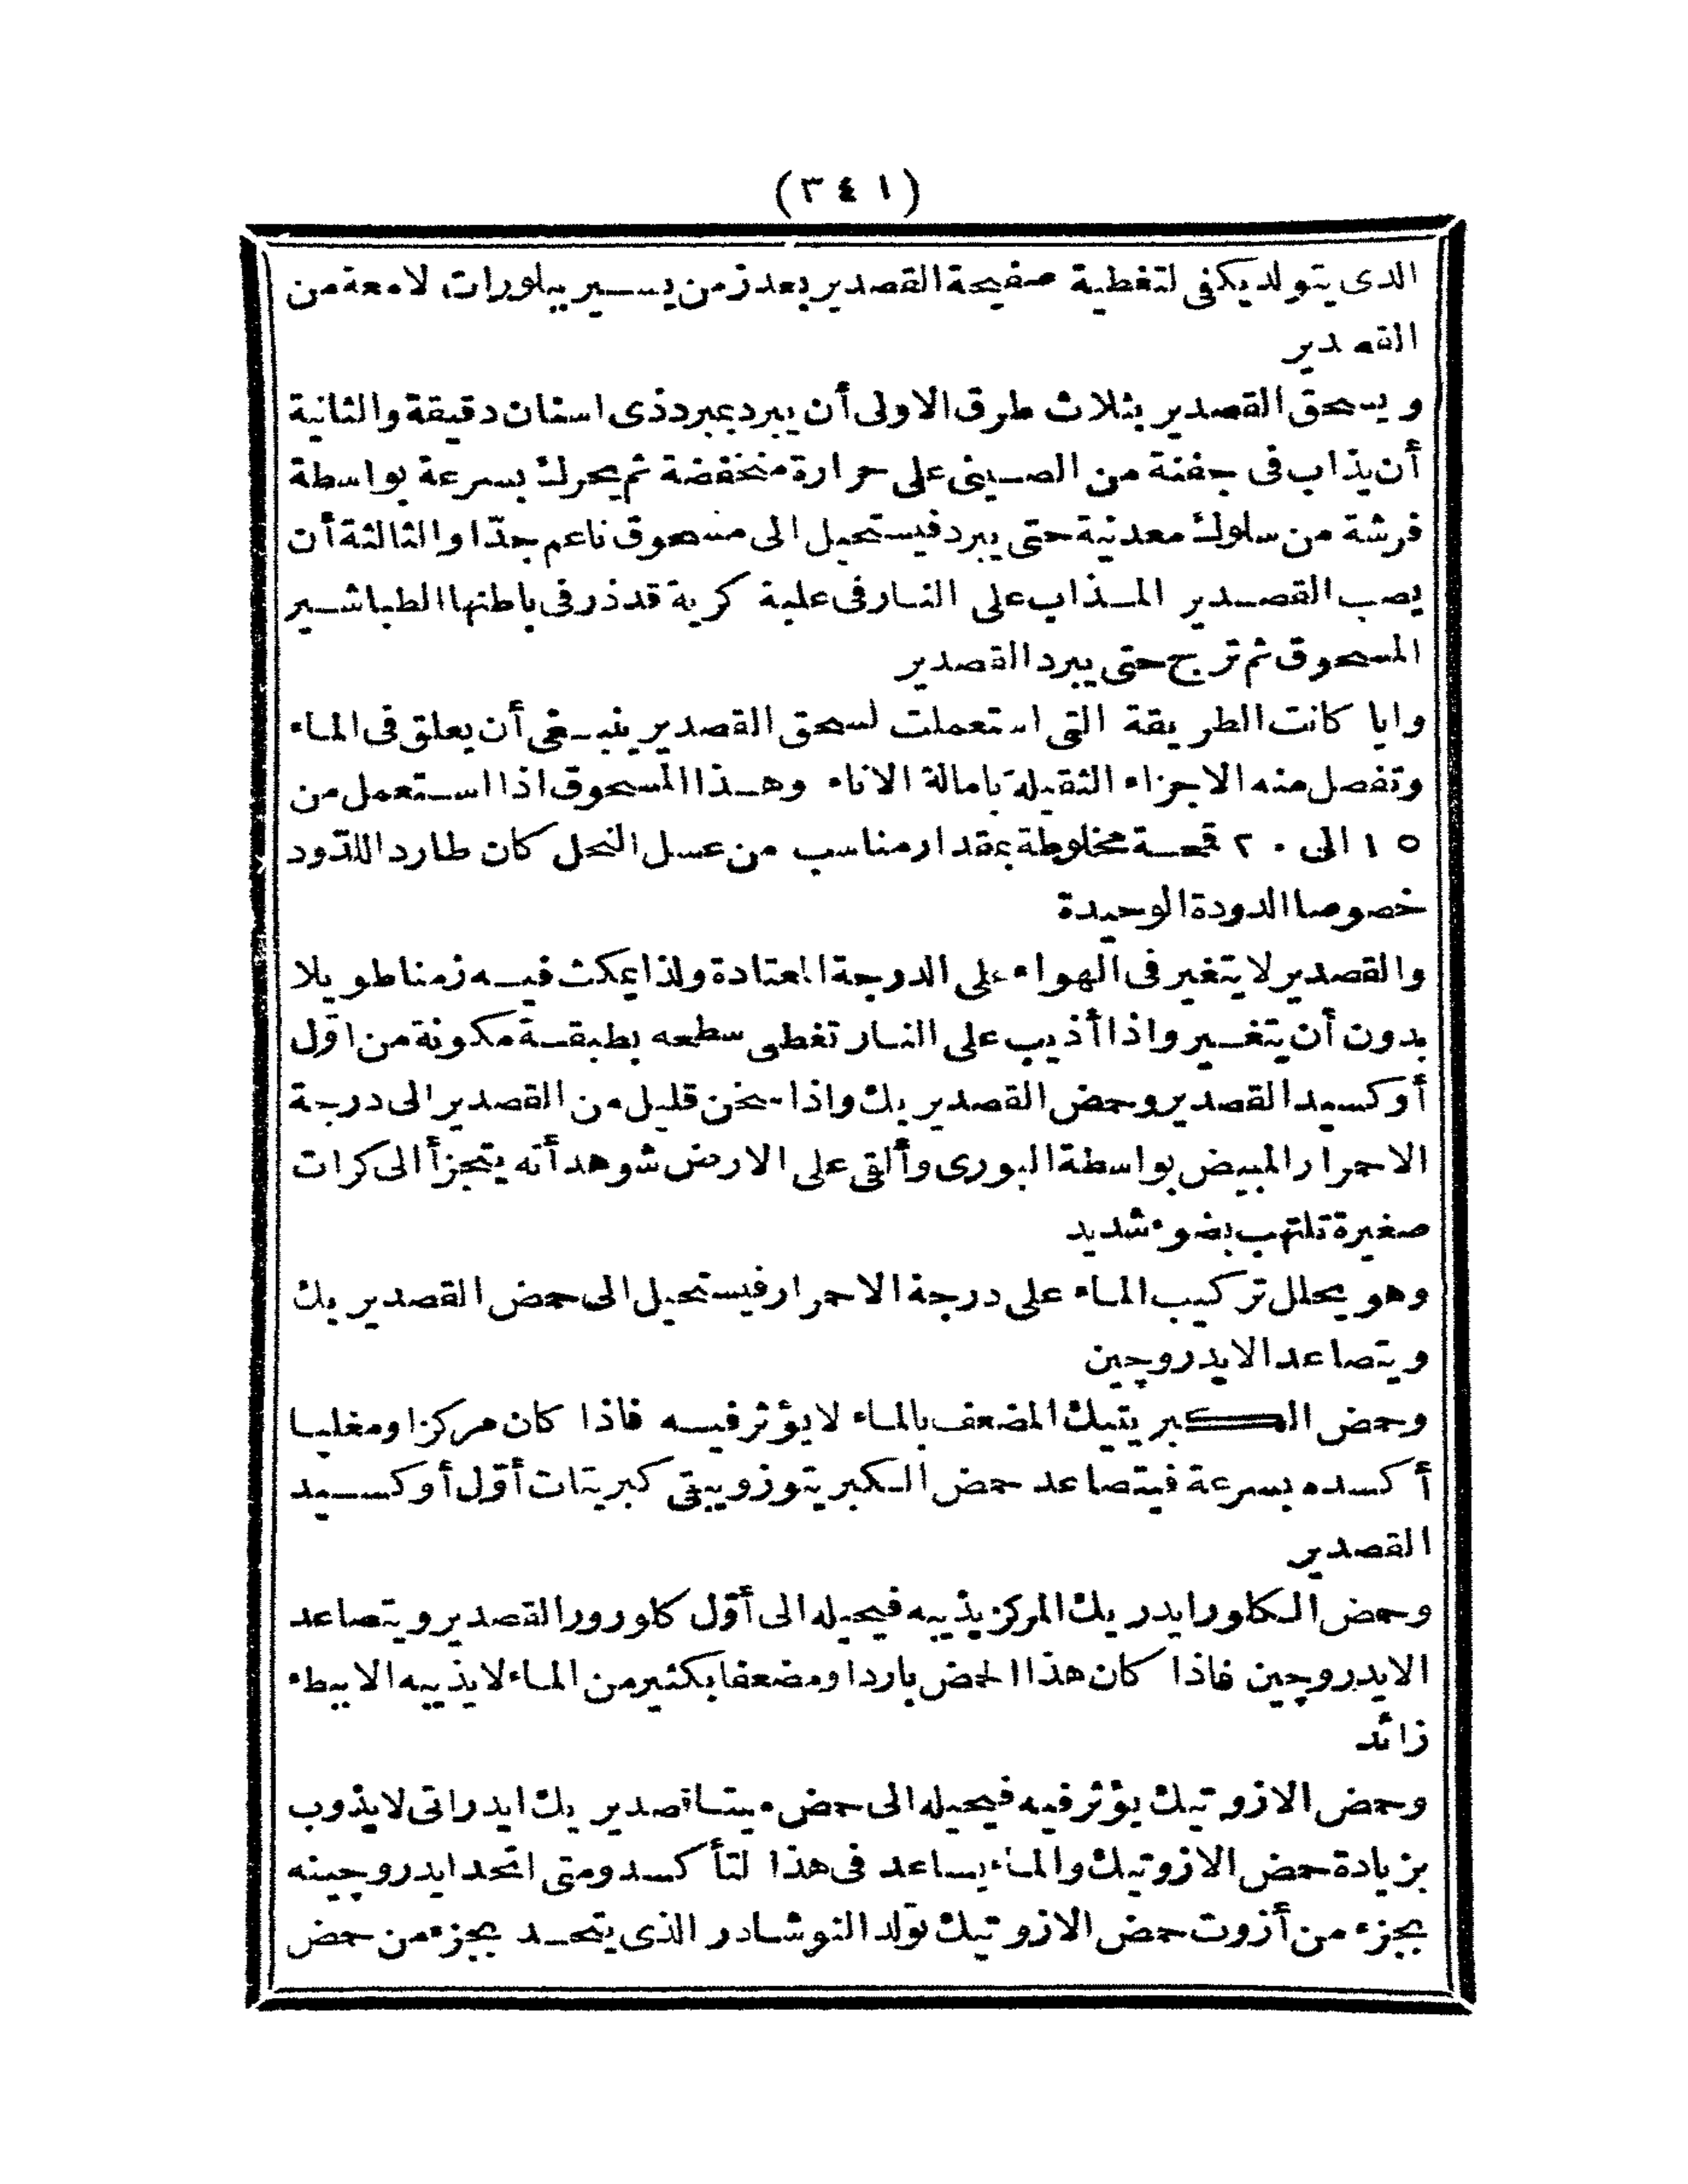 (٣٤١)
الذى يتولد يكفى لتغطية صفيحة القصدير بعد زمن يسير ببلورات لامعة من
القصدير
ويسحق القصدير بثلاث طرق الاولى أن يبرد بمبرد ذى اسنان دقيقة والثانية
أن يذاب فى جفنة من الصينى على حرارة منخفضة ثم يحرك بسرعة بواسطة
فرشة من سلوك معدنية حتى يبرد فيستحيل الى مسحوق ناعم جدّا والثالثة أن
يصب القصدير المذاب على النار فى علبة كرية قد ذر فى باطنها الطباشير
المسحوق ثم ترج حتى يبرد القصدير
وايا كانت الطريقة التى استعملت لسحق القصدير ينبغى أن يعلق فى الماء
وتفصل منه الاجزاء الثقيلة بامالة الاناء وهذا المسحوق اذا استعمل من
١٥ الى ٢٠ قمحة مخلوطة بمقدار مناسب من عسل النحل كان طارد اللدّود
خصوصا الدودة الوحيدة
والقصدير لا يتغير فى الهواء على الدرجة المعتادة ولذا يمكث فيه زمنا طويلا
بدون أن يتغير واذا أذيب على النار تغطى سطحه بطبقة مكونة من اوّل
أوكسيد القصدير وحمض القصديريك واذا سخن قليل من القصدير الى درجة
الاحمرار المبيض بواسطة البورى وألقى على الارض شوهد أنه يتجزأ الى كرات
صغيرة تلتهب بضوء شديد
وهو يحلل تركيب الماء على درجة الاحمرار فيستحيل الى حمض القصديريك
ويتصاعد الايدروچين
وحمض الكبريتيك المضعف بالماء لا يؤثر فيه فاذا كان مركزا ومغليا
أكسده بسرعة فيتصاعد حمض الكبريتوز ويبقى كبريتات أوّل أوكسيد
القصدير
وحمض الكلورايدريك المركز يذيبه فيحيله الى أوّل كلورور القصدير ويتصاعد
الايدروچين فاذا كان هذا الحمض باردا ومضعفا بكثير من الماء لا يذيبه الا ببطء
زائد
وحمض الازوتيك يؤثر فيه فيحيله الى حمض ميتاقصديريك ايدراتى لا يذوب
بزيادة حمض الازوتيك والماء يساعد فى هذا التأكسد ومتى اتحد ايدروچينه
بجزء من أزوت حمض الازوتيك تولد النوشادر الذى يتحد بجزء من حمض